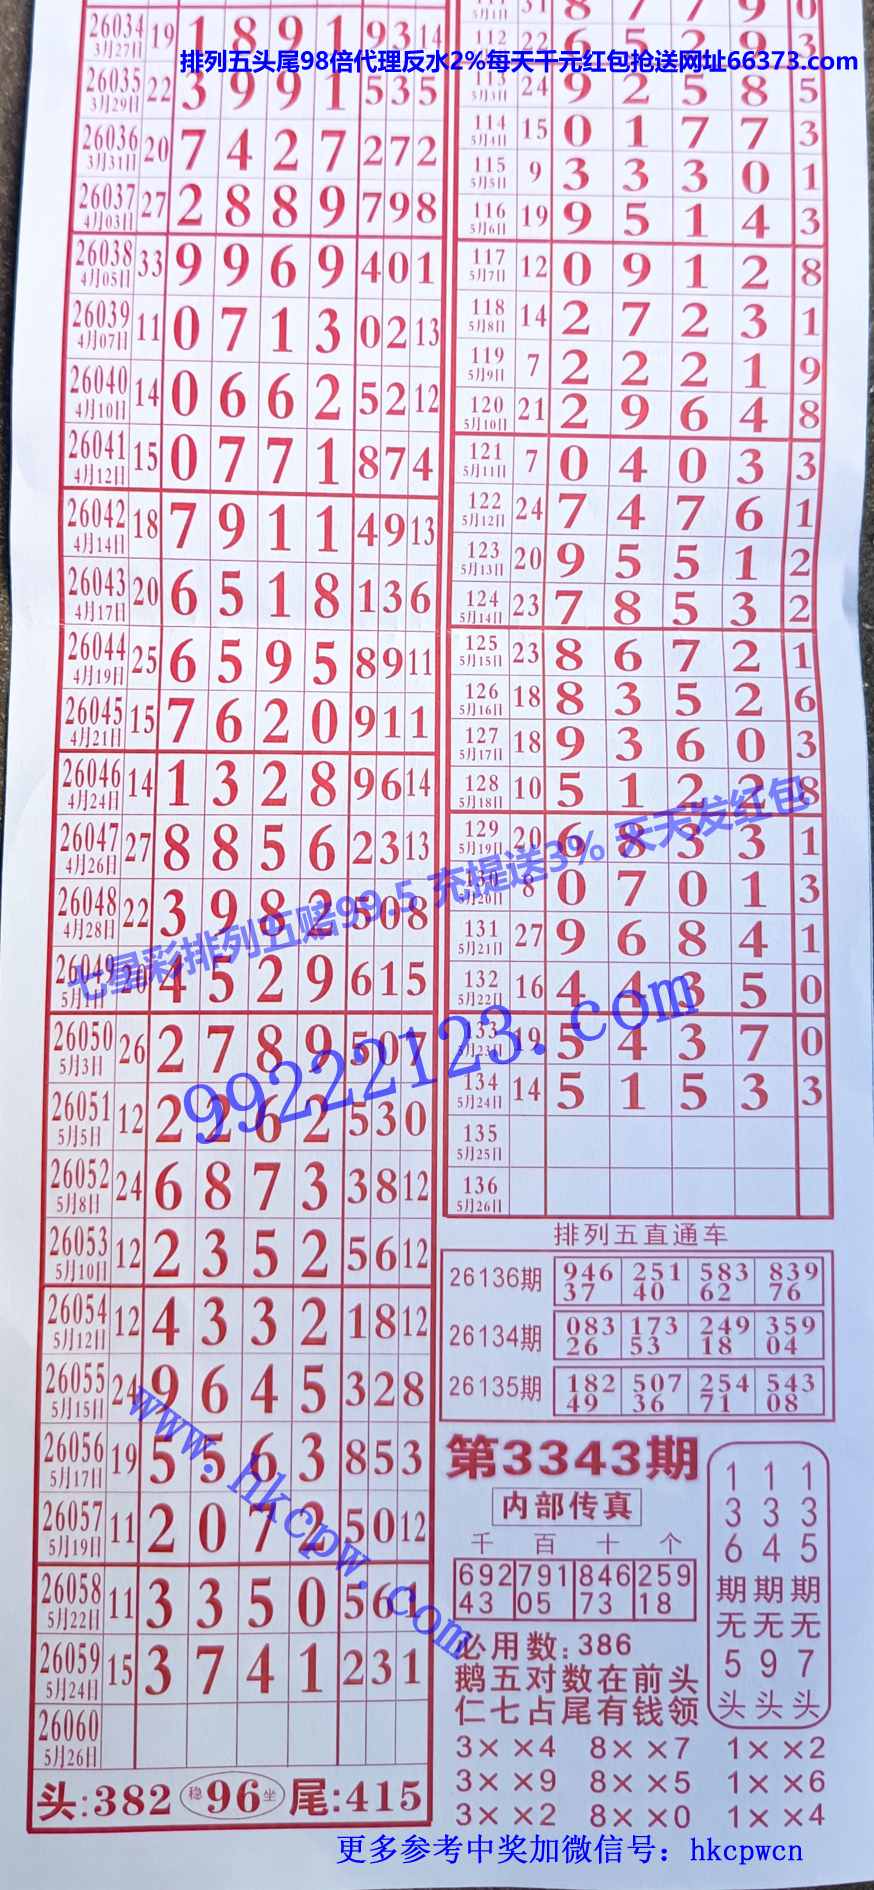 排列五头尾98倍代理反水2%每天千元红包抢送网址66373.com
26034 3月27日 19 1 8 9 1 9 3 14
26035 3月29日 22 3 9 9 1 5 3 5
26036 3月31日 20 7 4 2 7 2 7 2
26037 4月03日 27 2 8 8 9 7 9 8
26038 4月05日 33 9 9 6 9 4 0 1
26039 4月07日 11 0 7 1 3 0 2 13
26040 4月10日 14 0 6 6 2 5 2 12
26041 4月12日 15 0 7 7 1 8 7 4
26042 4月14日 18 7 9 1 1 4 9 13
26043 4月17日 20 6 5 1 8 1 3 6
26044 4月19日 25 6 5 9 5 8 9 11
26045 4月21日 15 7 6 2 0 9 1 1
26046 4月24日 14 1 3 2 8 9 6 14
26047 4月26日 27 8 8 5 6 2 3 13
26048 4月28日 22 3 9 8 2 5 0 8
26049 5月1日 20 4 5 2 9 6 1 5
26050 5月3日 26 2 7 8 9 5 0 7
26051 5月5日 12 2 2 6 2 5 3 0
26052 5月8日 24 6 8 7 3 3 8 12
26053 5月10日 12 2 3 5 2 5 6 12
26054 5月12日 12 4 3 3 2 1 8 12
26055 5月15日 24 9 6 4 5 3 2 8
26056 5月17日 19 5 5 6 3 8 5 3
26057 5月19日 11 2 0 7 2 5 0 12
26058 5月22日 11 3 3 5 0 5 6 1
26059 5月24日 15 3 7 4 1 2 3 1
26060 5月26日
头:382 稳 96 坐 尾:415
5月1日 31 8 7 7 9 0
112 22 6 5 2 9 3
113 5月3日 24 9 2 5 8 5
114 5月4日 15 0 1 7 7 3
115 5月5日 9 3 3 3 0 1
116 5月6日 19 9 5 1 4 3
117 5月7日 12 0 9 1 2 8
118 5月8日 14 2 7 2 3 1
119 5月9日 7 2 2 2 1 9
120 5月10日 21 2 9 6 4 8
121 5月11日 7 0 4 0 3 3
122 5月12日 24 7 4 7 6 1
123 5月13日 20 9 5 5 1 2
124 5月14日 23 7 8 5 3 2
125 5月15日 23 8 6 7 2 1
126 5月16日 18 8 3 5 2 6
127 5月17日 18 9 3 6 0 3
128 5月18日 10 5 1 2 2 8
129 5月19日 20 6 8 3 3 1
130 5月20日 8 0 7 0 1 3
131 5月21日 27 9 6 8 4 1
132 5月22日 16 4 4 3 5 0
133 5月23日 19 5 4 3 7 0
134 5月24日 14 5 1 5 3 3
135 5月25日
136 5月26日
排列五直通车
26136期 946 251 583 839
37 40 62 76
26134期 083 173 249 359
26 53 18 04
26135期 182 507 254 543
49 36 71 08
第3343期
内部传真
千 百 十 个
692 791 846 259
43 05 73 18
必用数:386
鹅五对数在前头
仁七占尾有钱领
136期无5头
134期无9头
135期无7头
3××4 8××7 1××2
3××9 8××5 1××6
3××2 8××0 1××4
七星彩排列五赔99.5 充提送3% 天天发红包
99222123.com
www.hkcpw.com
更多参考中奖加微信号：hkcpwcn